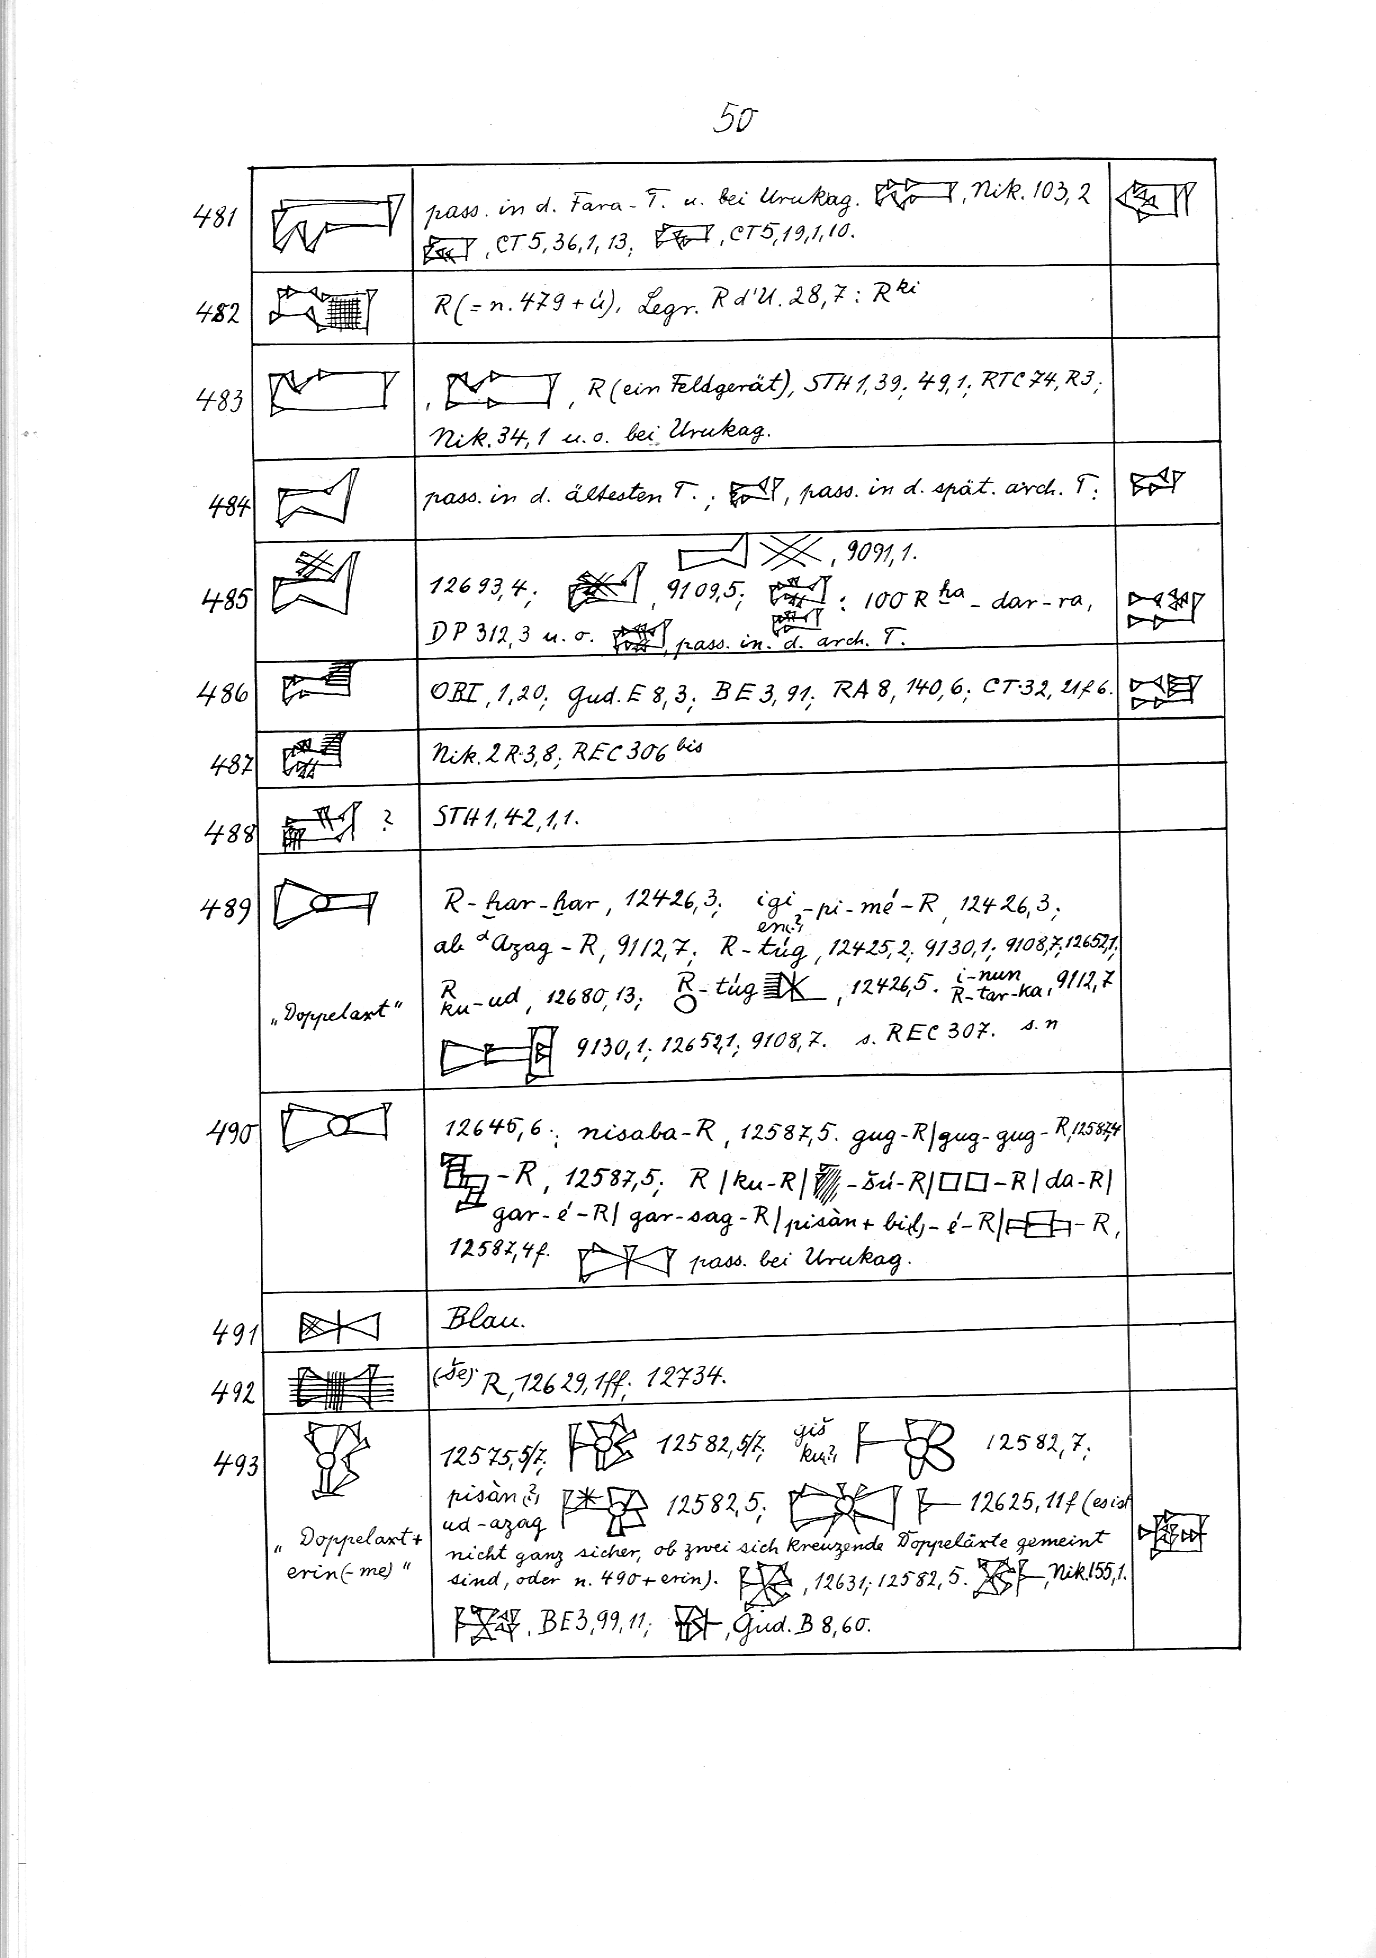 50
481 pass. in d. Fara-T. u. bei Urukag. , Nik. 103, 2
, CT 5, 36, 1, 13; , CT 5, 19, 1, 10.
482 R (= n. 479 + ú). Legr. R d'U. 28, 7: R ki
483 , , R (ein Feldgerät), STH 1, 39; 49, 1; RTC 74, R 3;
Nik. 34, 1 u. o. bei Urukag.
484 pass. in d. ältesten T.; , pass. in d. spät. arch. T;
, 9091, 1.
485 12693, 4; , 9109, 5; : 100 R ḫa-dar-ra,
DP 312, 3 u. o. , pass. in d. arch. T.
486 OBI, 1, 20; Gud. E 8, 3; BE 3, 91; RA 8, 140, 6; CT 32, 21 f 6.
487 Nik. 2 R. 3, 8; REC 306 bis
488 ? STH 1, 42, 1, 1.
489 R-ḫar-ḫar, 12426, 3; igi-pi-mé-R, 12426, 3;
en(?)
ab d Azag-R, 9112, 7; R-túg, 12425, 2; 9130, 1; 9108, 7; 12652, 1;
R
ku-ud, 12680, 13; R-túg , 12426, 5. i-nun
R-tar-ka, 9112, 7
„Doppelaxt“
9130, 1; 12652, 1; 9108, 7. s. REC 307. s. n
490 12645, 6.; nisaba-R, 12587, 5. gug-R/gug-gug-R, 12587, 4
-R, 12587, 5; R/ku-R/ -šú-R/ -R/da-R/
gar-é-R/gar-sag-R/pisàn+ -é-R/ -R,
12587, 4 f. pass. bei Urukag.
491 Blau.
492 (še) R, 12629, 1ff; 12734.
493 12575, 5/7; 12582, 5/7; giš
ku(?) 12582, 7;
pisàn(?)
ud-azag 12582, 5; 12625, 11 f (es ist
„Doppelaxt +
erin(-me)“
nicht ganz sicher, ob zwei sich kreuzende Doppeläxte gemeint
sind, oder n. 490 + erin). , 12631; 12582, 5. , Nik. 155, 1.
, BE 3, 99, 11; , Gud. B 8, 60.